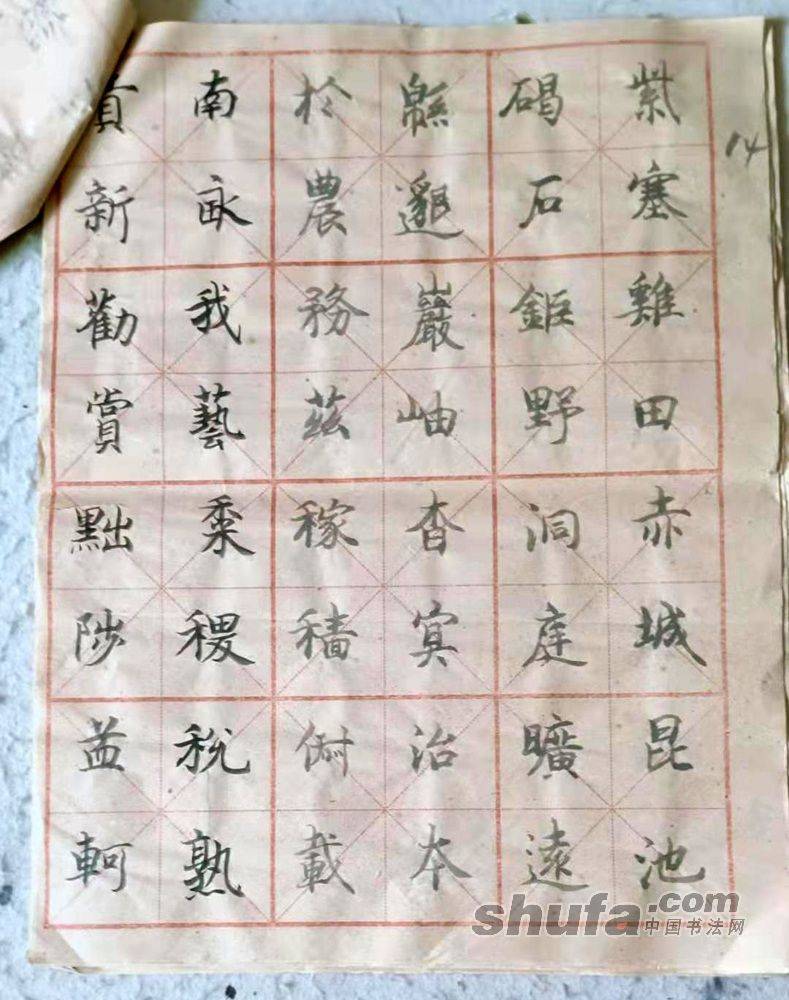 紫塞雞田赤城昆池
碣石鉅野洞庭曠遠
緜邈巖岫杳冥治本
於農務茲稼穡俶載
南畝我藝黍稷稅熟
貢新勸賞黜陟孟軻
14
shufa.com
中国书法网